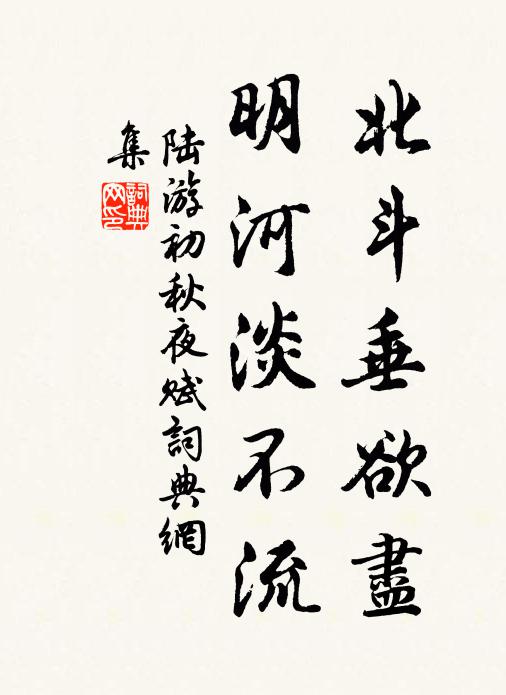 北斗垂欲盡
明河淡不流
陸游初秋夜賦詞典網
集
詞典網印